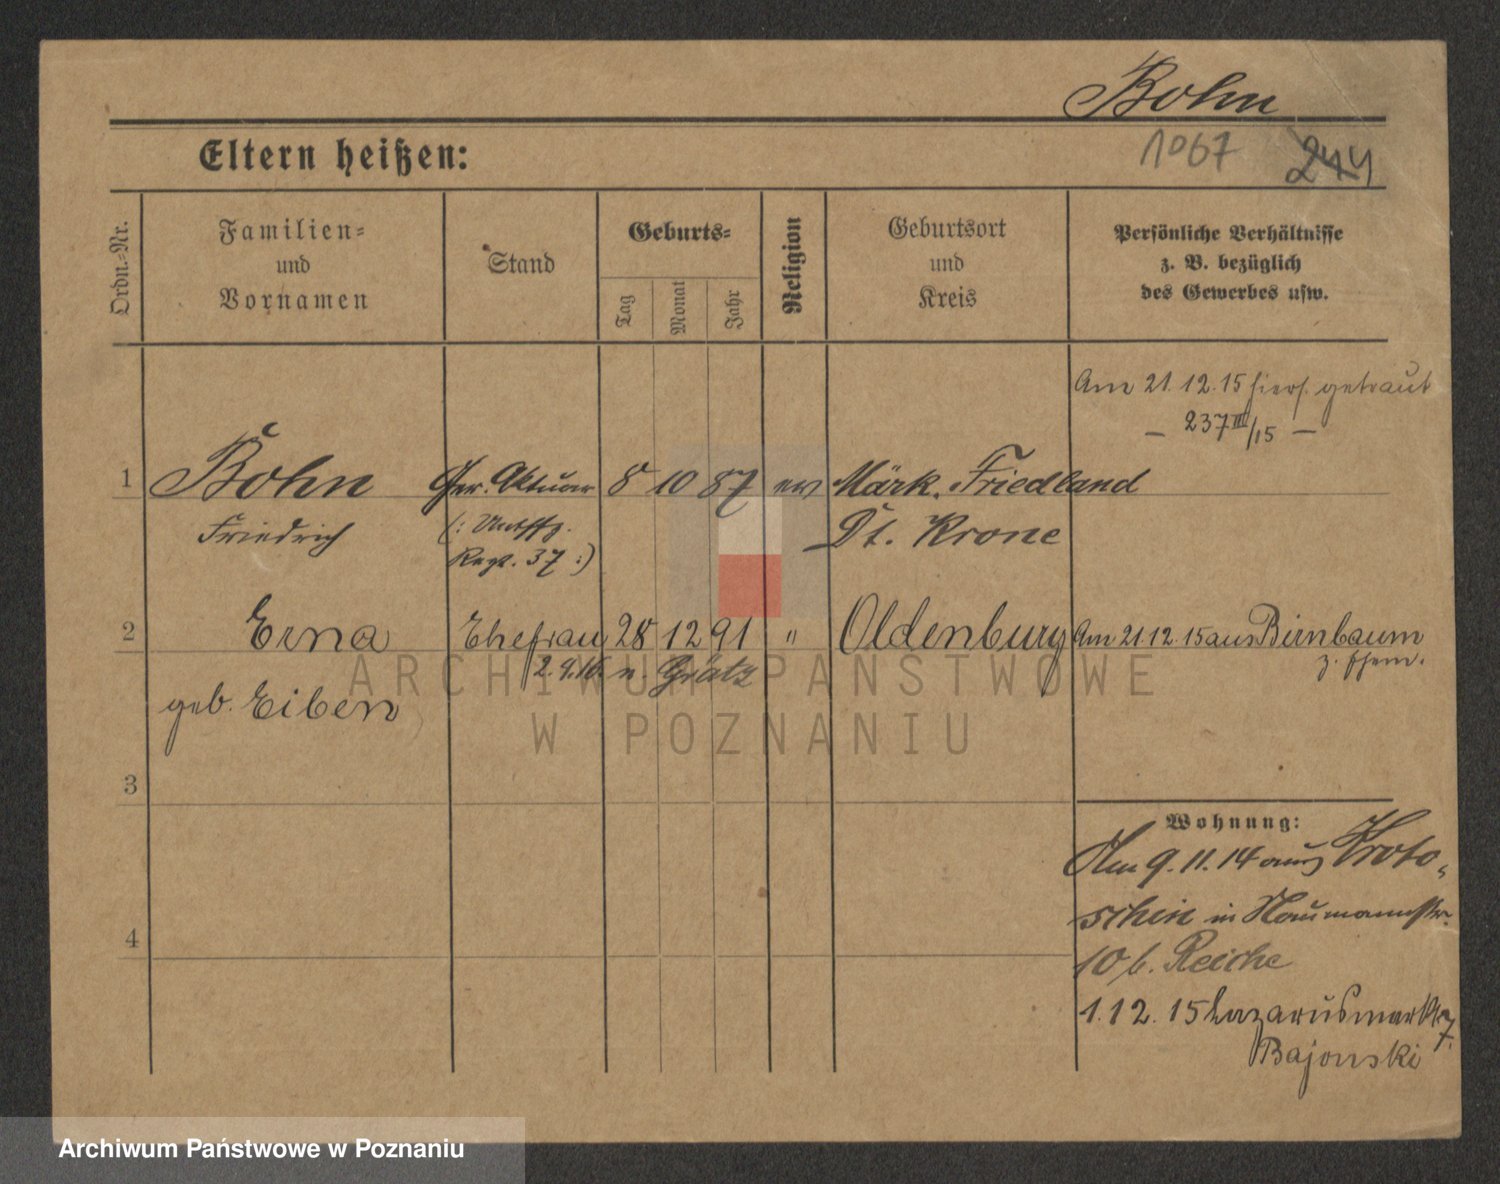 Bohn
Eltern heißen:
1067 244
Ordn.-Nr.
Familien-
und
Vornamen
Stand
Geburts-
Tag
Monat
Jahr
Religion
Geburtsort
und
Kreis
Persönliche Verhältnisse
z. B. bezüglich
des Gewerbes usw.
Am 21.12.15 hiers. getraut
— 237 III/15 —
1 Bohn Ger. Aktuar 8 10 87 ev Märk. Friedland
Friedrich (: Untffz. Dt. Krone
Regt. 37 :)
2 Erna Ehefrau 28 12 91 " Oldenburg Am 21.12.15 aus Birnbaum
2.9.16 n. Grätz z. Ehem.
geb. Eiben
3
4
Wohnung:
Am 9.11.14 aus Kroto-
schin in Naumannstr.
10 b. Reiche
1.12.15 Lazarusmarkt 7.
Bajonski
ARCHIWUM PAŃSTWOWE
W POZNANIU
Archiwum Państwowe w Poznaniu